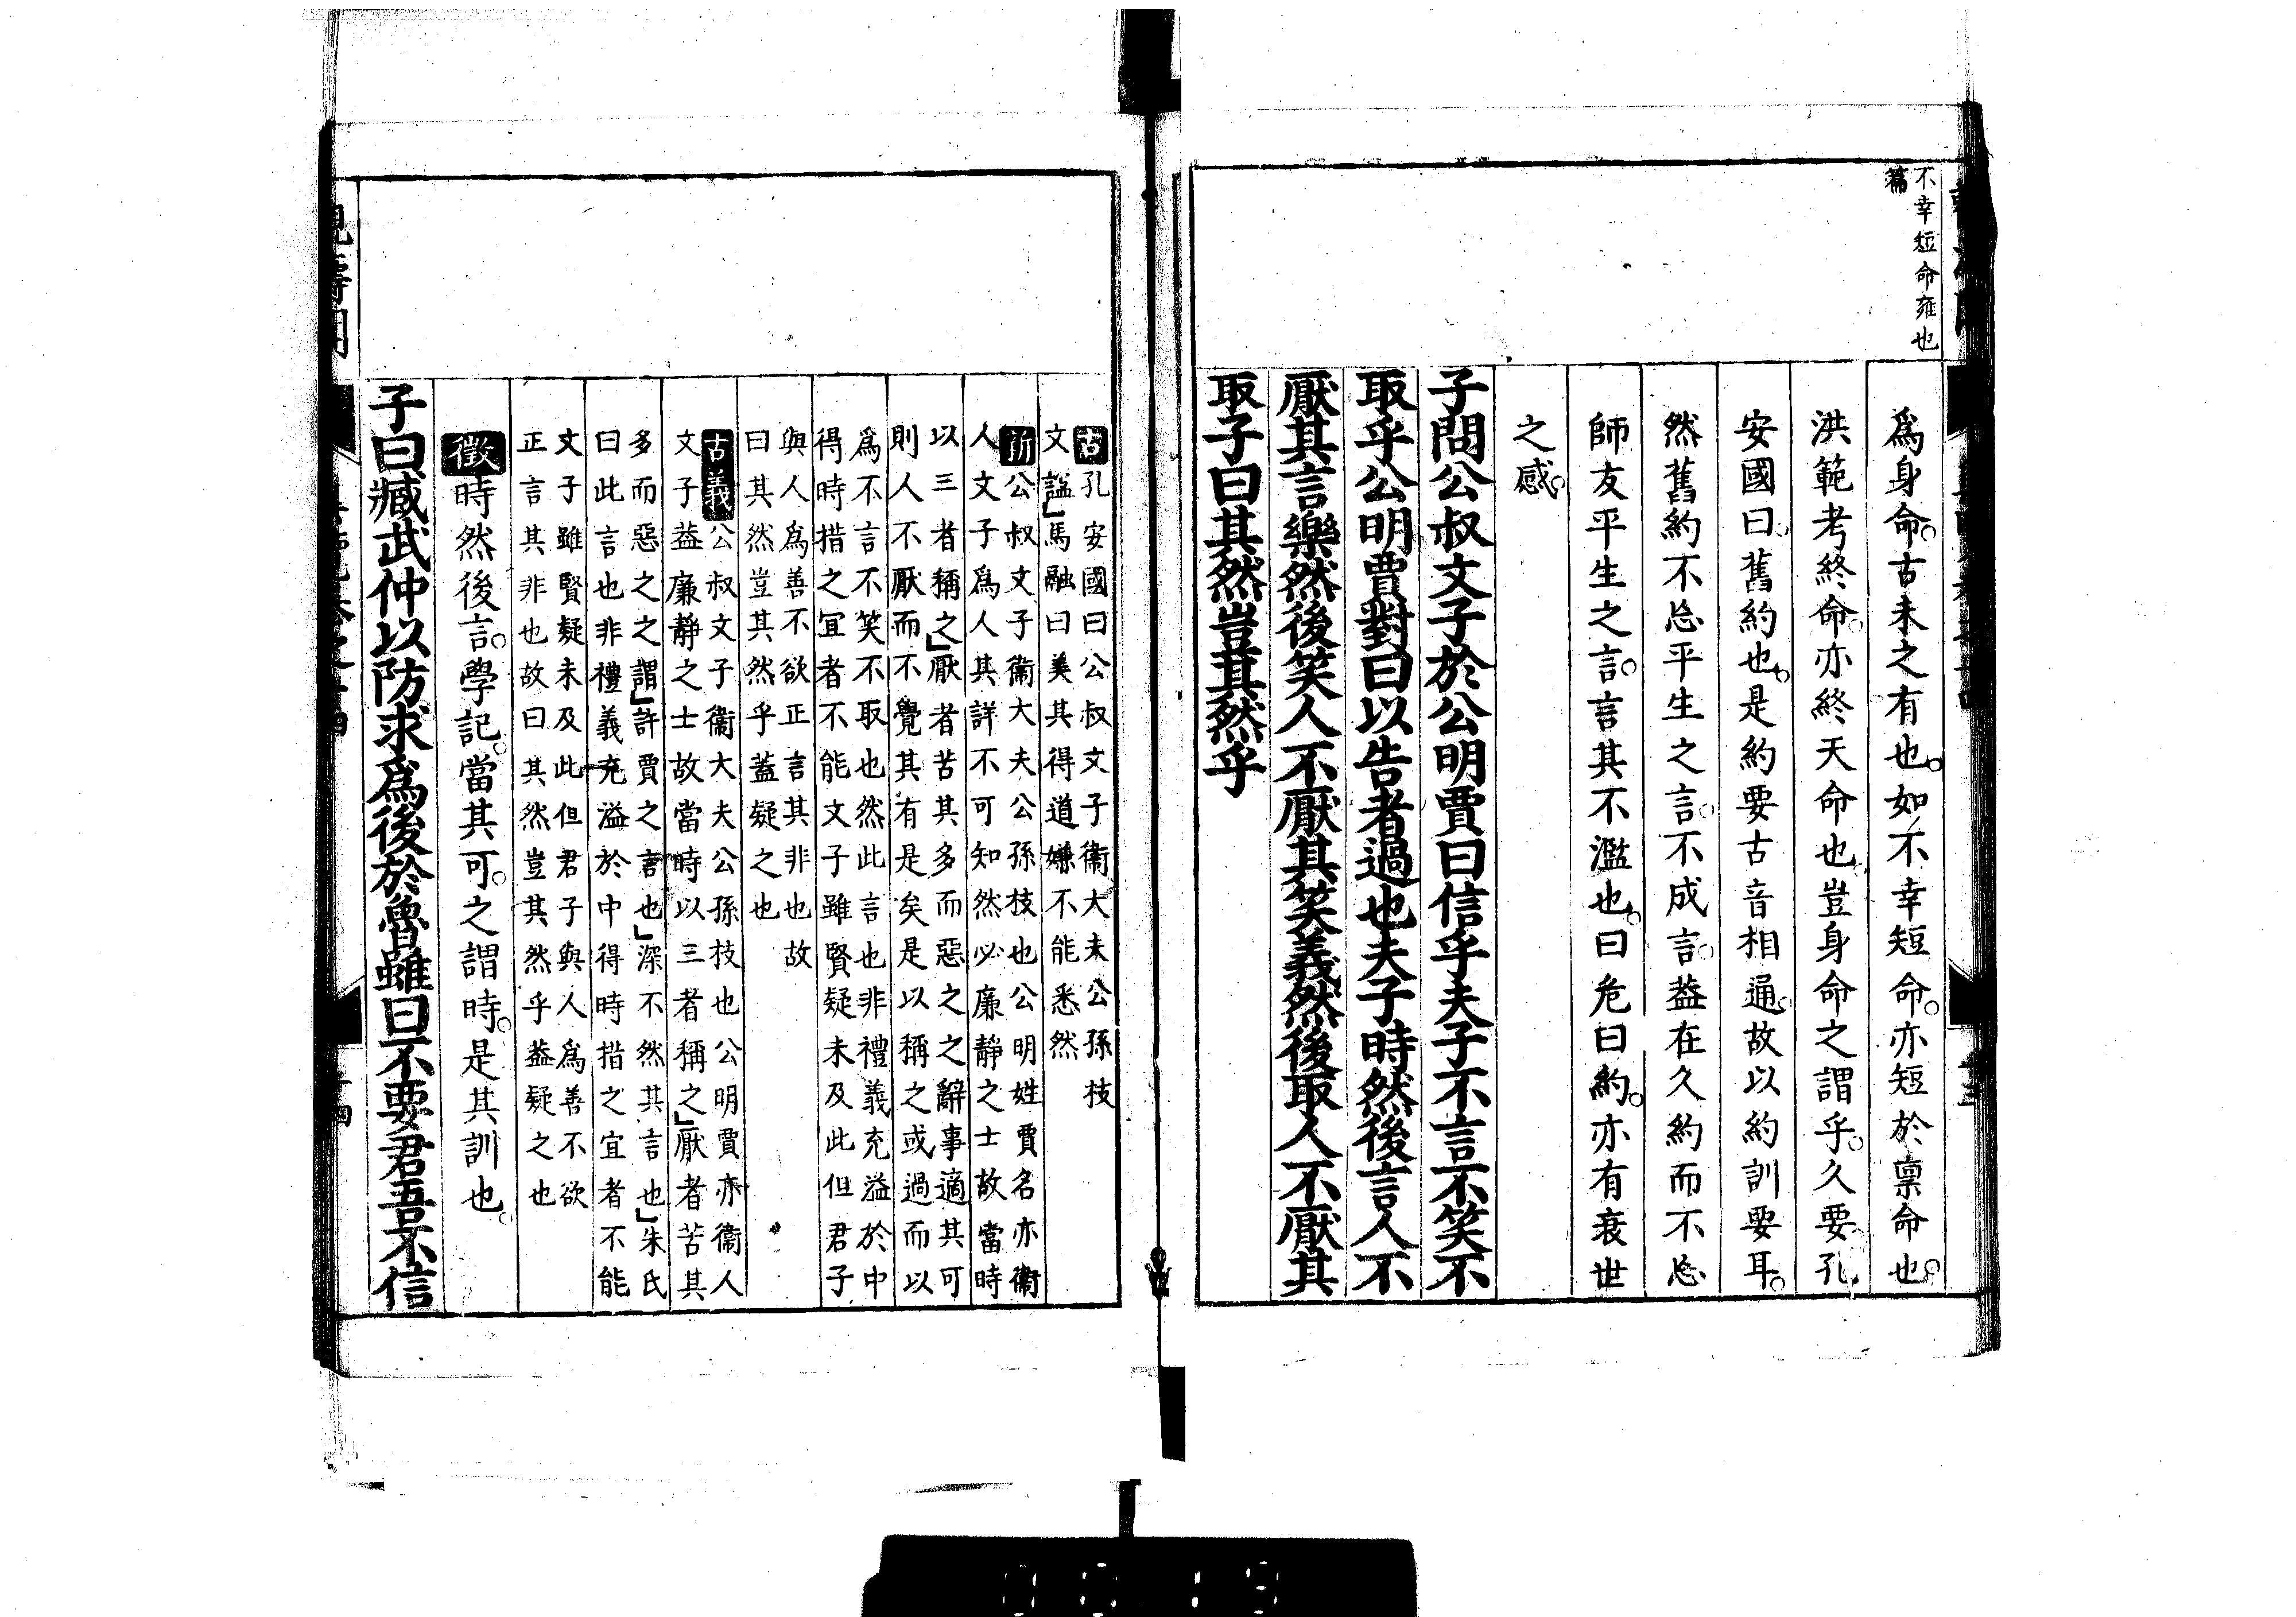 不幸短命雍也
篇
爲身命古未之有也如不幸短命亦短於稟命也
洪範考終命亦終天命也豈身命之謂乎久要孔
安國曰舊約也是約要古音相通故以約訓要耳
然舊約不忘平生之言不成言葢在久約而不忘
師友平生之言言其不濫也曰危曰約亦有衰世
之感
子問公叔文子於公明賈曰信乎夫子不言不笑不
取乎公明賈對曰以告者過也夫子時然後言人不
厭其言樂然後笑人不厭其笑義然後取人不厭其
取子曰其然豈其然乎
古孔安國曰公叔文子衞大夫公孫枝
文謚馬融曰美其得道嫌不能悉然
新公叔文子衞大夫公孫枝也公明姓賈名亦衞
人文子爲人其詳不可知然必廉靜之士故當時
以三者稱之厭者苦其多而惡之之辭事適其可
則人不厭而不覺其有是矣是以稱之或過而以
爲不言不笑不取也然此言也非禮義充溢於中
得時措之宜者不能文子雖賢疑未及此但君子
與人爲善不欲正言其非也故
曰其然豈其然乎葢疑之也
古義公叔文子衞大夫公孫枝也公明賈亦衞人
文子葢廉靜之士故當時以三者稱之厭者苦其
多而惡之之謂許賈之言也深不然其言也朱氏
曰此言也非禮義充溢於中得時措之宜者不能
文子雖賢疑未及此但君子與人爲善不欲
正言其非也故曰其然豈其然乎葢疑之也
徵時然後言學記當其可之謂時是其訓也
子曰臧武仲以防求爲後於魯雖曰不要君吾不信